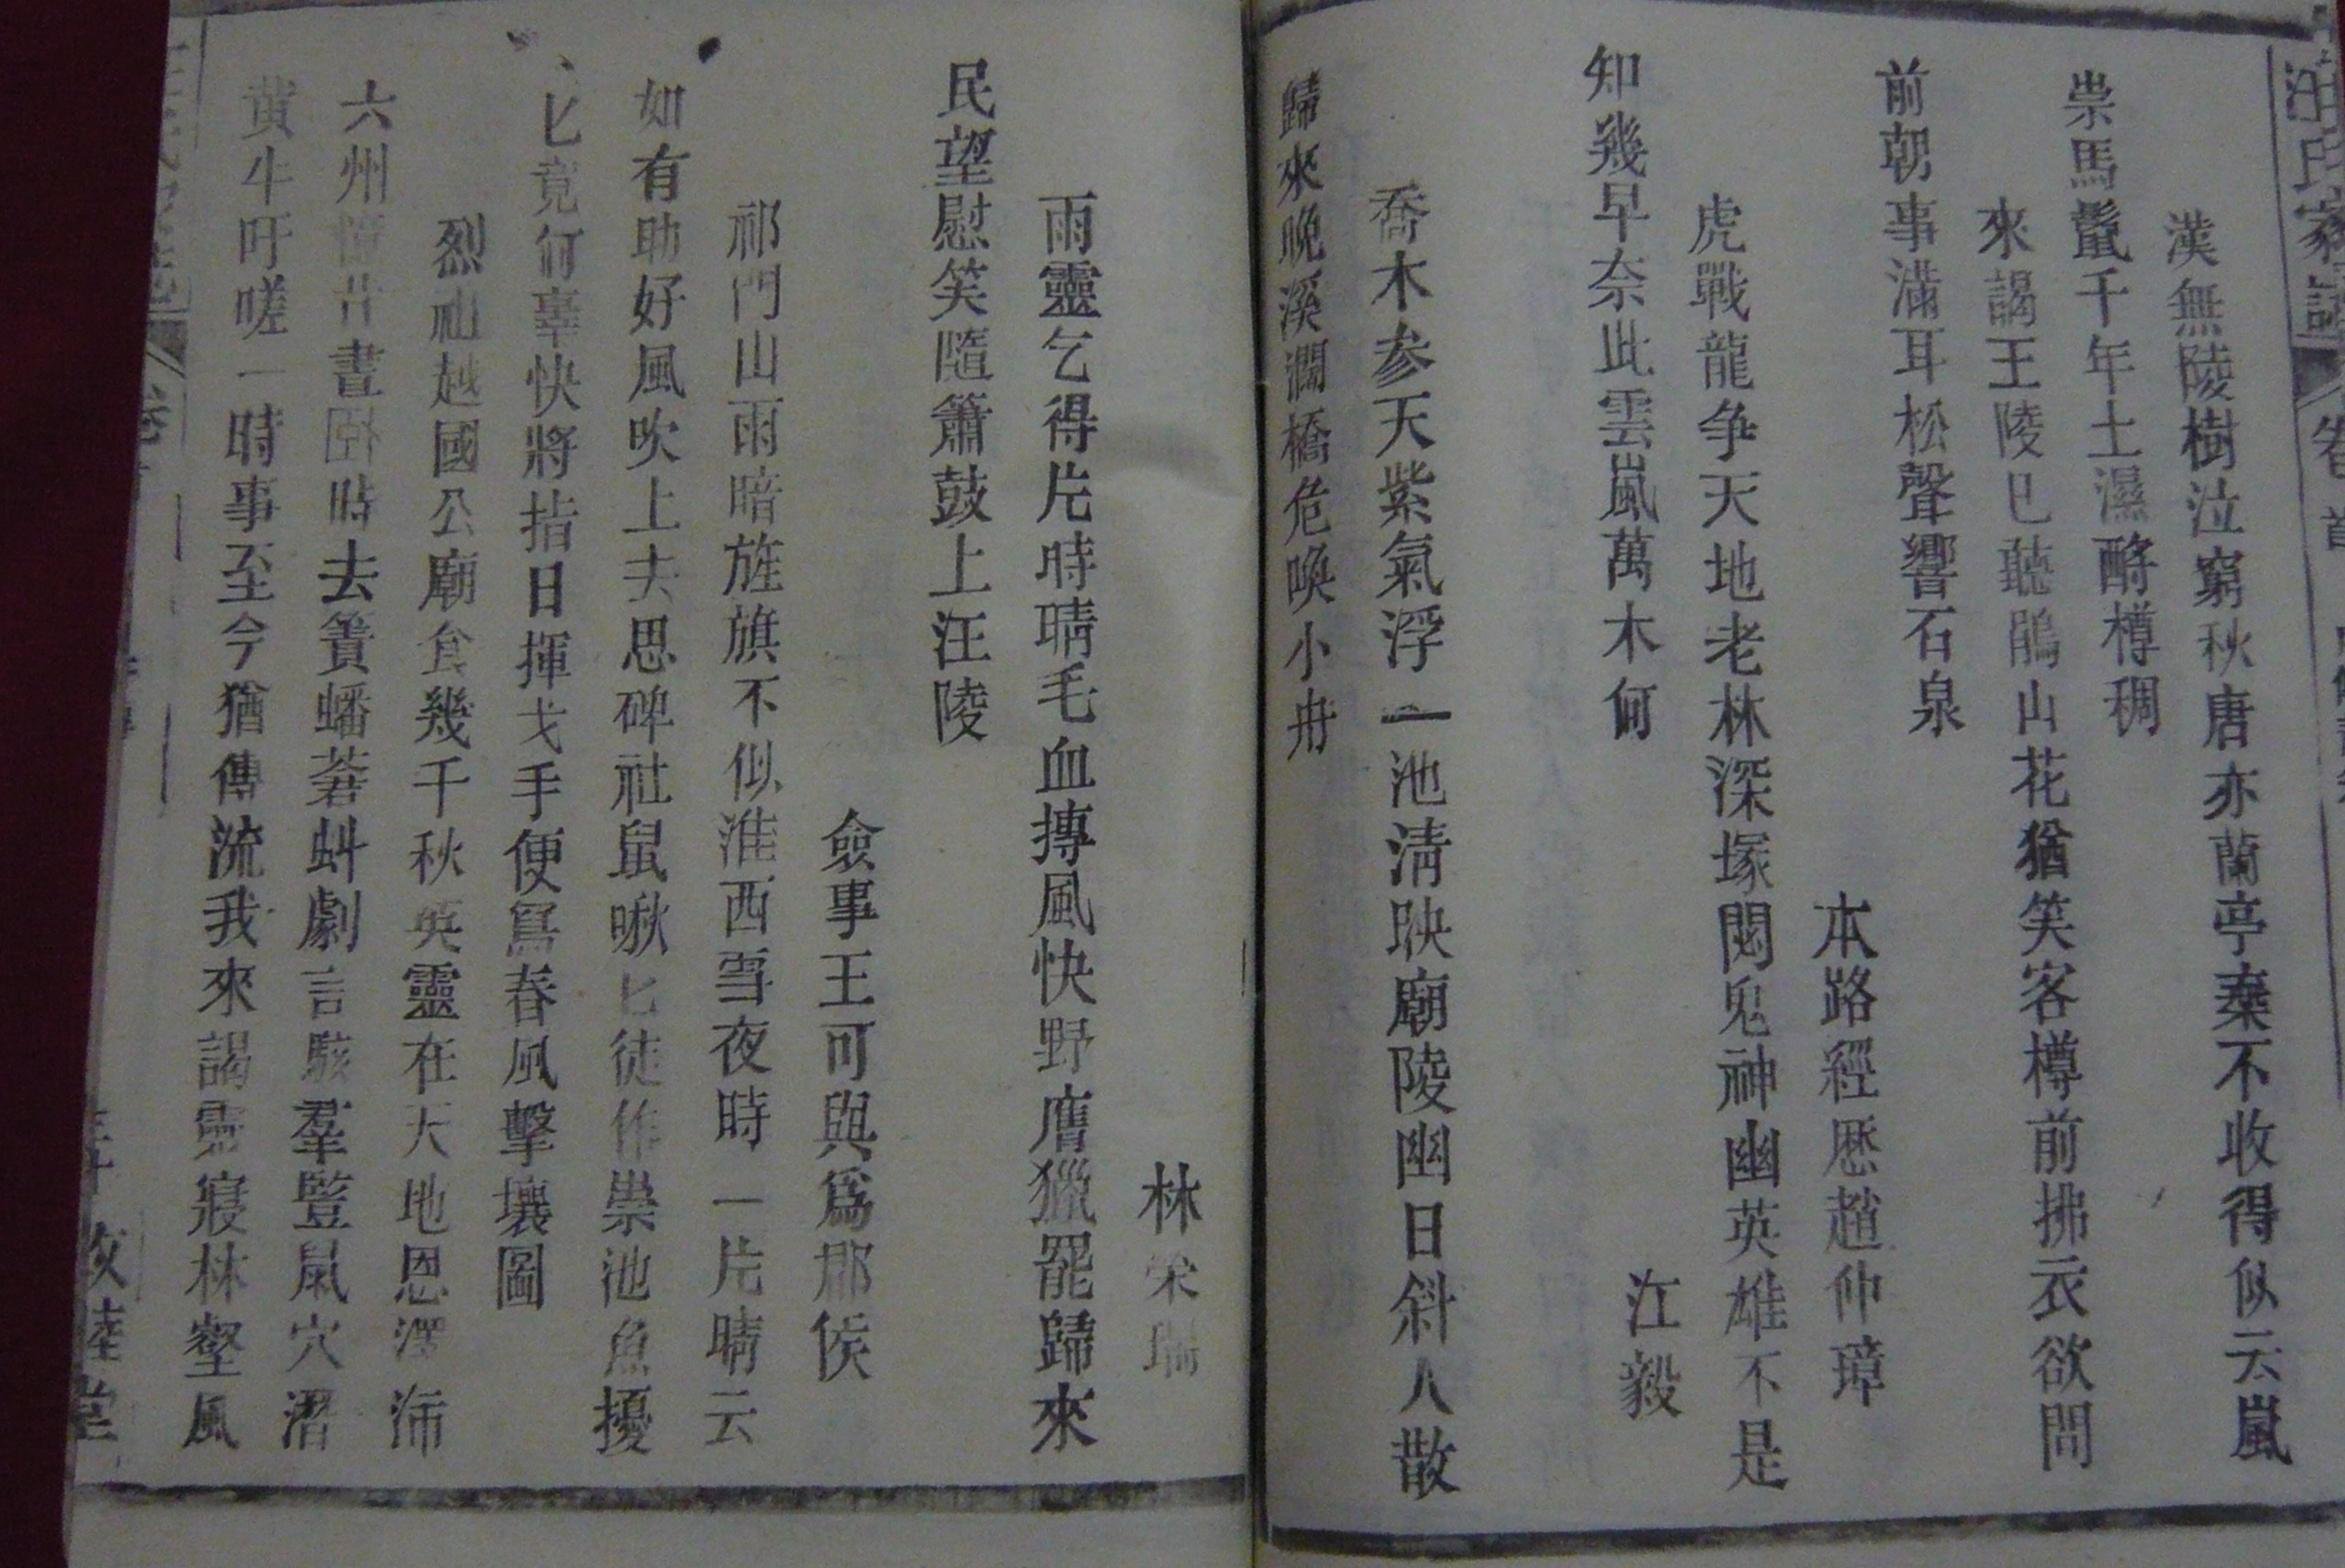 汪氏家譜
卷首
漢無陵樹泣窮秋唐亦蘭亭棄不收得似云嵐
崇馬鬛千年土濕酹樽稠
來謁王陵已聽鵑山花猶笑客樽前拂衣欲問
前朝事滿耳松聲響石泉
本路經歷趙仲璋
虎戰龍争天地老林深塚閟鬼神幽英雄不是
知幾早奈此雲嵐萬木何
江毅
喬木参天紫氣浮一池清映廟陵幽日斜人散
歸來晚溪濶橋危喚小舟
林榮瑞
雨靈乞得片時晴毛血摶風快野鷹獵罷歸來
民望慰笑隨簫鼓上汪陵
僉事王可與爲郡侯
祁門山雨暗旌旗不似淮西雪夜時一片晴云
如有助好風吹上去思碑社鼠啾匕徒作祟池魚擾
匕竟何辜快將指日揮戈手便寫春風擊壤圖
烈祖越國公廟食幾千秋英靈在天地恩澤沛
六州憶昔晝臥時去簀蟠蒼蚪劇言駭羣豎鼠穴潛
黄牛吁嗟一時事至今猶傳流我來謁靈寢林壑風